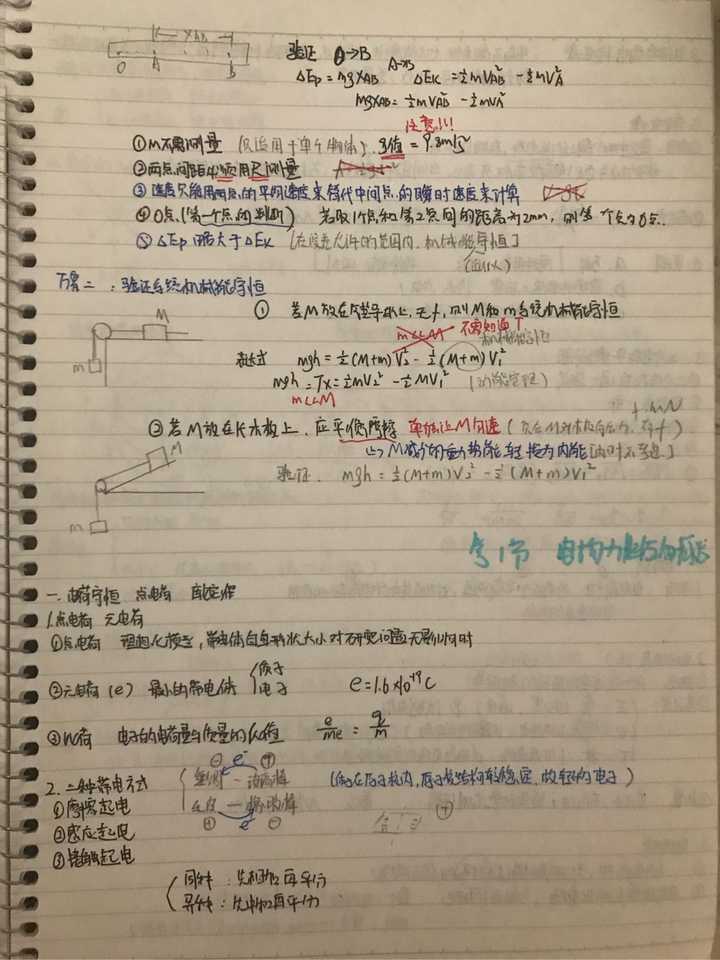 x_AB
O A B
验证 A→B
ΔEp = mgx_AB A→B ΔEk = ½mV_B² - ½mV_A²
mgx_AB = ½mV_B² - ½mV_A²
注意!!!
①m不需测量 (只适用于单个物体). g值 = 9.8m/s²
②两点间距必须用尺测量
③速度只能用两点的平均速度来替代中间点的瞬时速度来计算
④O点(第一个点的判断) 若取1个点和第2点间的距离为2mm, 则第一个点为O点.
⑤ΔEp 略大于ΔEk [在误差允许的范围内, 机械能守恒]
(近似)
方案二: 验证系统机械能守恒
M
m
① 若M放在气垫导轨上, 无f, 则M和m系统机械能守恒
m<<M 不需知道T
表达式 mgh = ½(M+m)V₂² - ½(M+m)V₁²
mgh = Tx = ½MV₂² - ½MV₁² (动能定理)
m<<M
②若M放在长木板上, 应平衡摩擦 单独让M匀速
↳ M减少的重力势能转换为内能
M
m
验证. mgh = ½(M+m)V₂² - ½(M+m)V₁²
第1节 电场力性质
一. 电荷守恒 点电荷 库定律
1.点电荷 元电荷
①点电荷 理想化模型, 带电体自身形状大小对研究问题无影响时
②元电荷(e) 最小的带电体 { 质子 电子 e=1.6×10⁻¹⁹C
③比荷 电子的电荷量与质量的比值 e/me = q/m
2. 三种带电方式
①摩擦起电
②感应起电
③接触起电
玻璃 — 丝绸
毛皮 — 橡胶棒
同种: 先相加再平分
异种: 先中和再平分